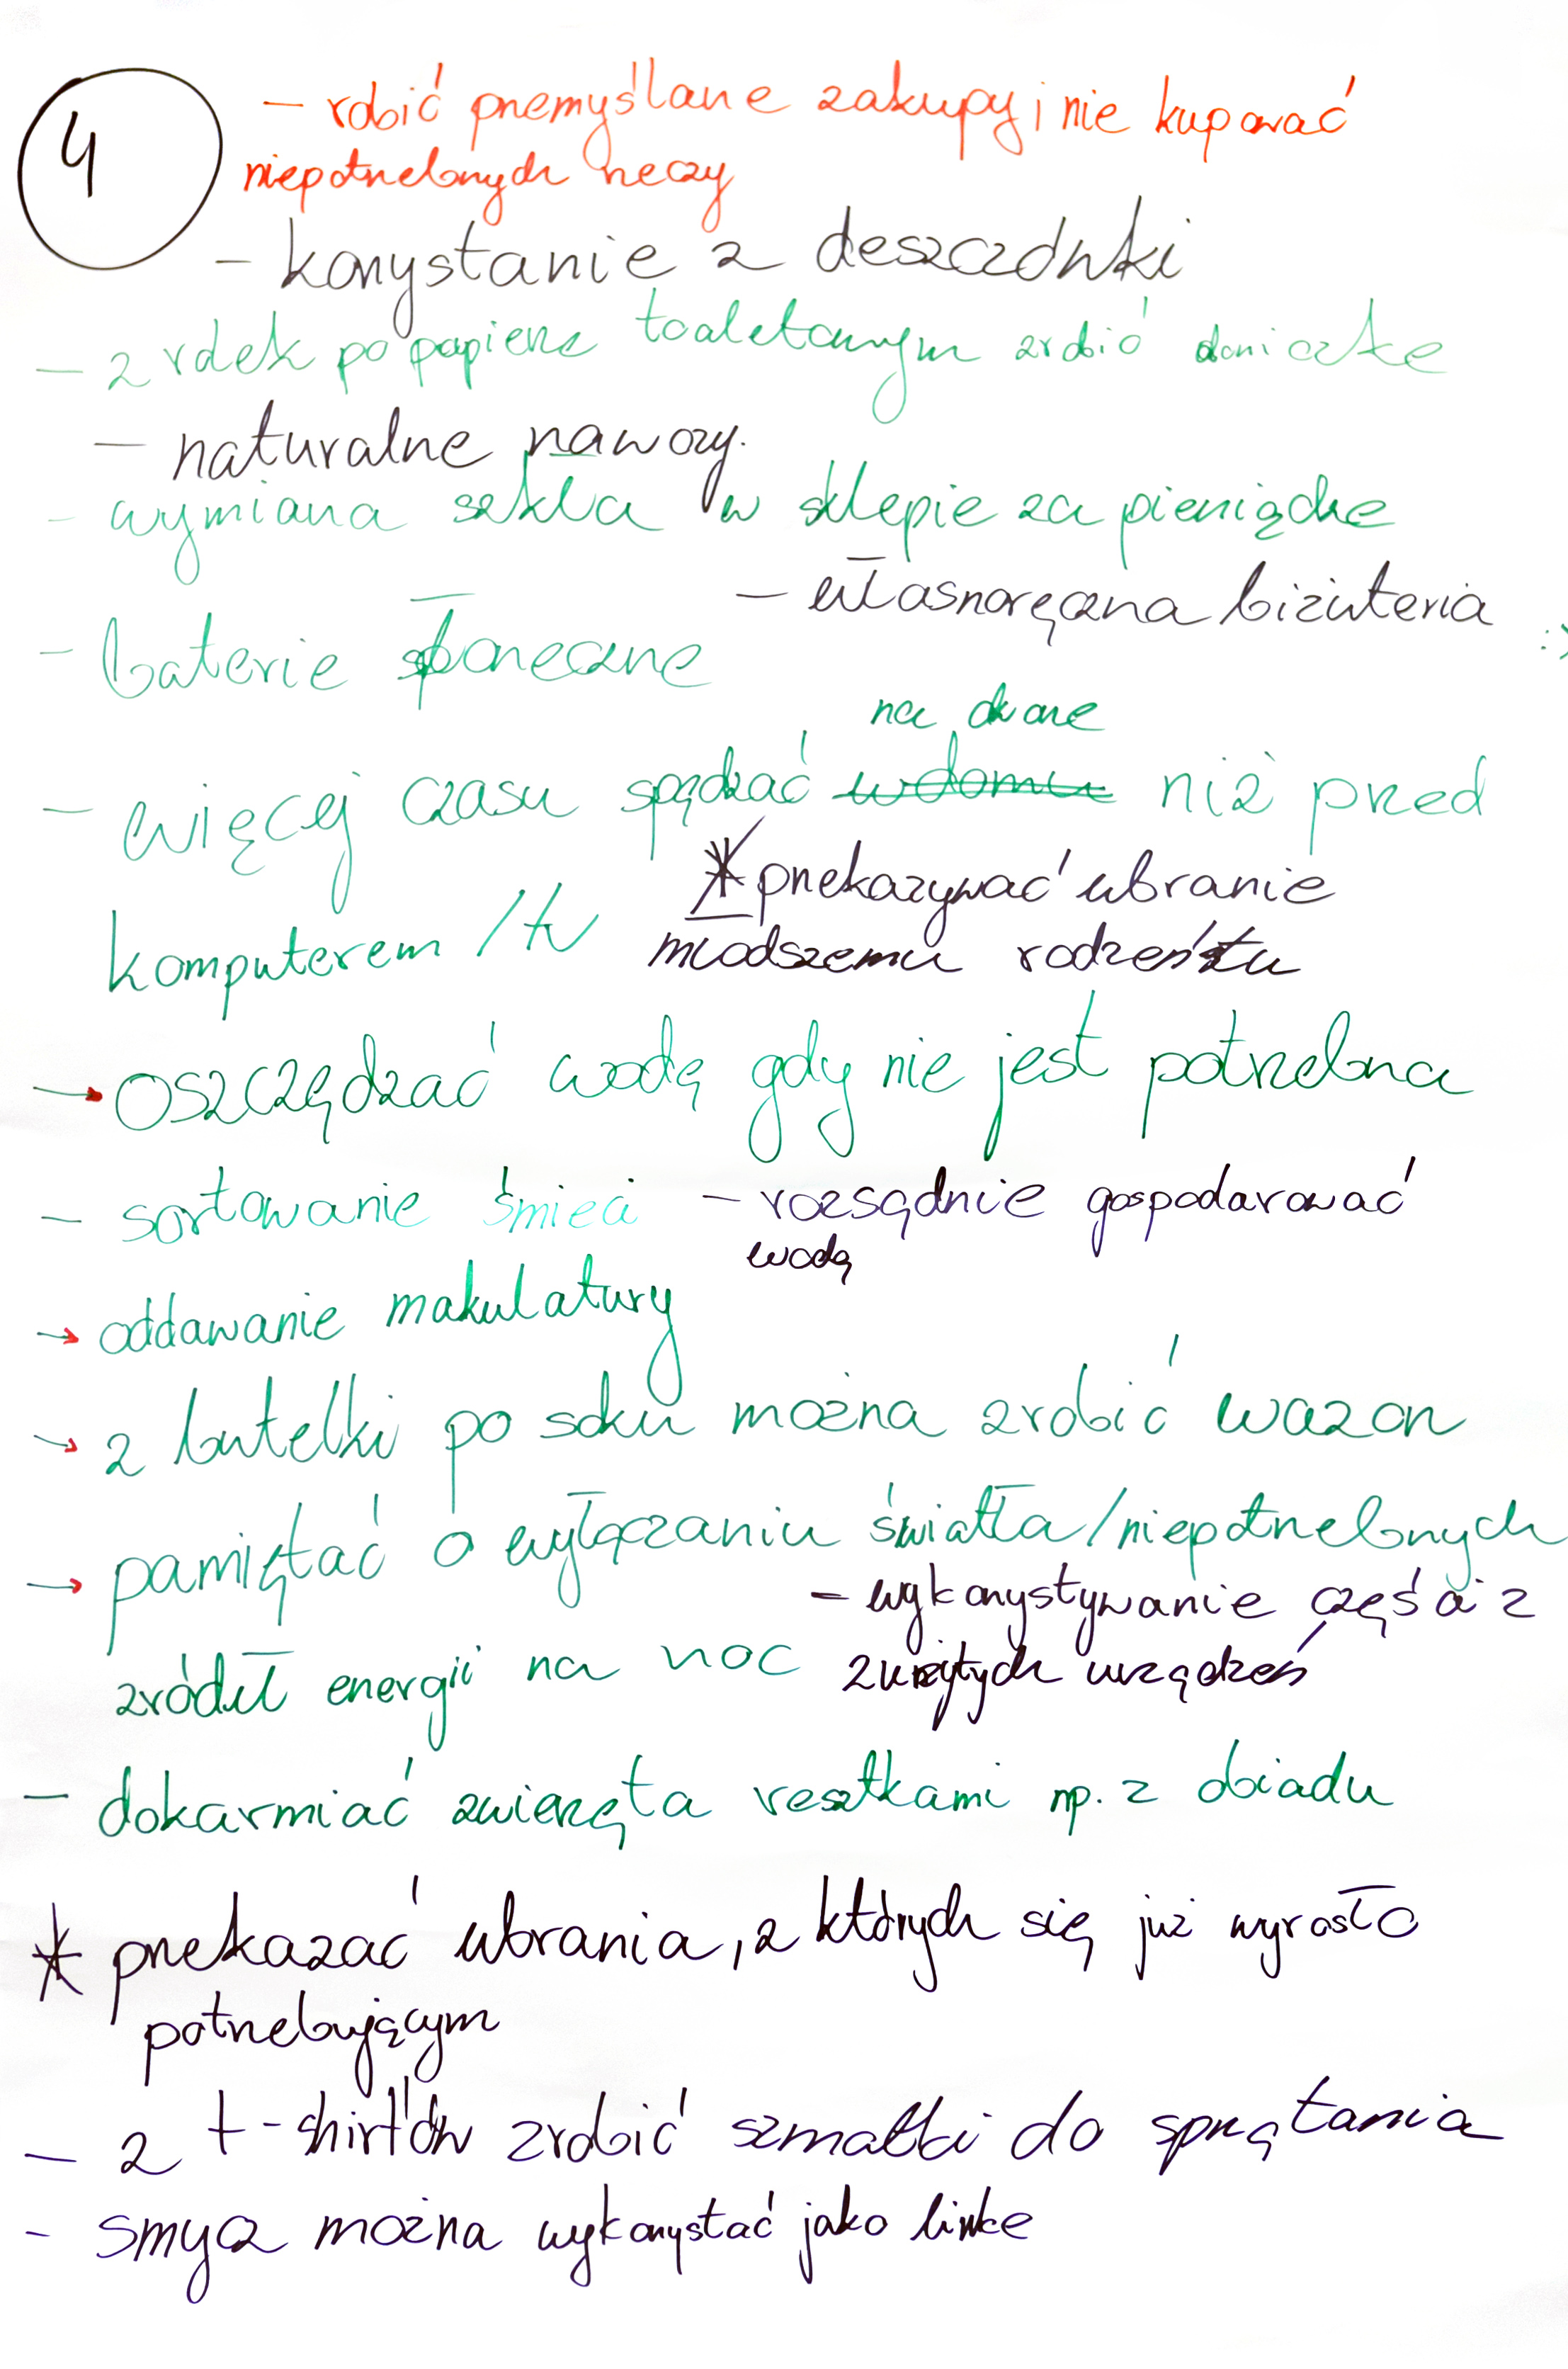 4
- robić przemyślane zakupy i nie kupować
niepotrzebnych rzeczy
- korzystanie z deszczówki
- z rolek po papierze toaletowym zrobić doniczkę
- naturalne nawozy.
- wymiana szkła w sklepie za pieniądze
- własnoręczna biżuteria :)
- baterie słoneczne
na dworze
- więcej czasu spędzać w domu niż przed
komputerem / tv
* przekazywać ubranie
młodszemu rodzeństwu
→ oszczędzać wodę gdy nie jest potrzebna
- sortowanie śmieci - rozsądnie gospodarować
wodą
→ oddawanie makulatury
→ z butelki po soku można zrobić wazon
→ pamiętać o wyłączaniu światła / niepotrzebnych
- wykorzystywanie części z
źródeł energii na noc zużytych urządzeń
- dokarmiać zwierzęta resztkami np. z obiadu
* przekazać ubrania, z których się już wyrosło
potrzebującym
- z t-shirt'ów zrobić szmatki do sprzątania
- smycz można wykorzystać jako linkę